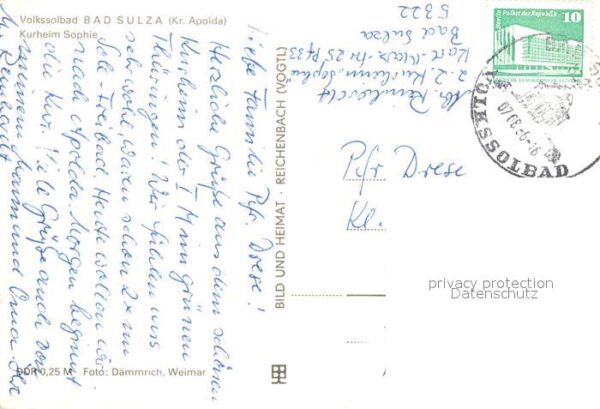 Volkssolbad BAD SULZA (Kr. Apolda)
Kurheim Sophie
Liebe Familie Pfr. Drese!
Herzliche Grüße aus dem schönen
Kurheim der I M im grünen
Thüringen! Wir fühlen uns
sehr wohl, waren schon 2x im
Sole-Freibad. Heute wollen wir
nach Apolda. Morgen beginnt
die Kur. Viele Grüße auch von
meinem Mann und Oma. Ihre
DDR 0,25 M Foto: Dämmrich, Weimar
BILD UND HEIMAT · REICHENBACH (VOGTL)
Abs. Reinhardt
z. Z. Kurheim "Sophie"
Karl-Marx-Str 25
Bad Sulza
5322
Pfr Drese
Kl.
Berlin, Palast der Republik
10
DDR
VOLKSSOLBAD
privacy protection
Datenschutz